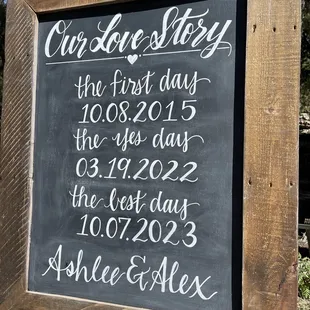 Our Love Story
the first day
10.08.2015
the yes day
03.19.2022
the best day
10.07.2023
Ashlee & Alex